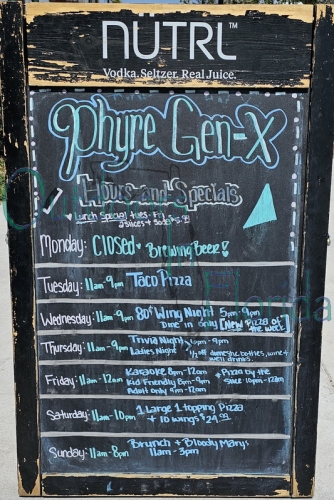 NÜTRL™
Vodka. Seltzer. Real Juice.
Phyre Gen-X
Hours and Specials
Lunch Special Tues-Fri
2 Slices + Soda
Monday: Closed • Brewing Beer!
Tuesday: 11am-9pm Taco Pizza
Wednesday: 11am-9pm 80¢ Wing Night 5pm-9pm
Dine in only [New Pizza of
the week]
Thursday: 11am-9pm Trivia Night 6pm-9pm
Ladies Night 1/2 off domestic bottles, wine +
well drinks
Friday: 11am-12am Karaoke 8pm-12am + Pizza by the
Kid Friendly 8pm-9pm Slice 10pm-12am
Adult only 9pm-12am
Saturday: 11am-10pm 1 Large 1 topping Pizza
+ 10 wings $24.99
Sunday: 11am-8pm Brunch + Bloody Marys
11am-3pm